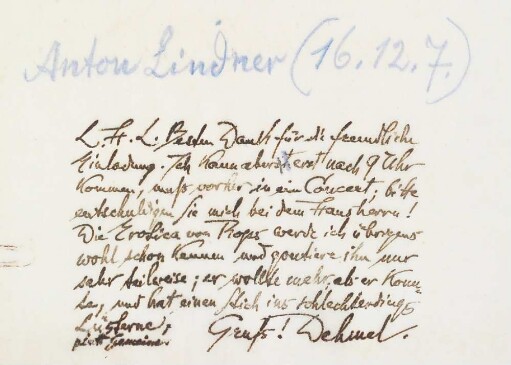 Anton Lindner (16.12.7.)
L. H. L. Besten Dank für die freundliche
Einladung. Ich kann aber erst nach 9 Uhr
kommen, muß vorher in ein Concert; bitte
entschuldigen Sie mich bei dem Hausherrn!
Die Erotica von Rops werde ich übrigens
wohl schon kennen und goutiere ihn nur
sehr teilweise; er wollte mehr als er konn-
te, und hat einen Stich ins schlechterdings
Lüsterne,
Gruß! Dehmel.